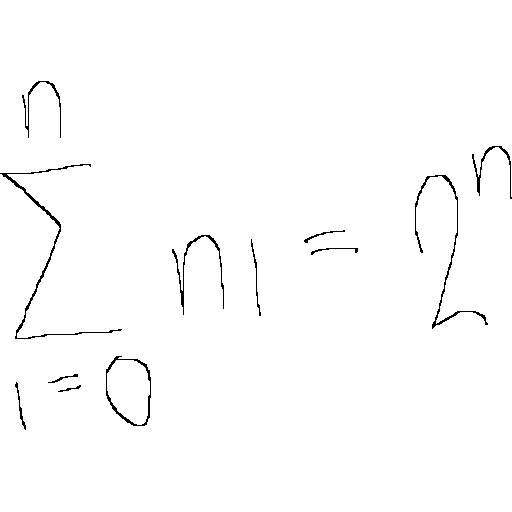 \sum_{i=0}^{n} ni = 2^n